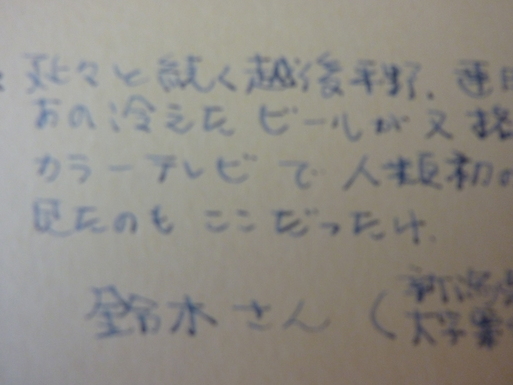 延々と続く越後平野、連日
あの冷えたビールが又格
カラーテレビで人類初の
見たのもここだったけ、
鈴木さん(新潟県
大字